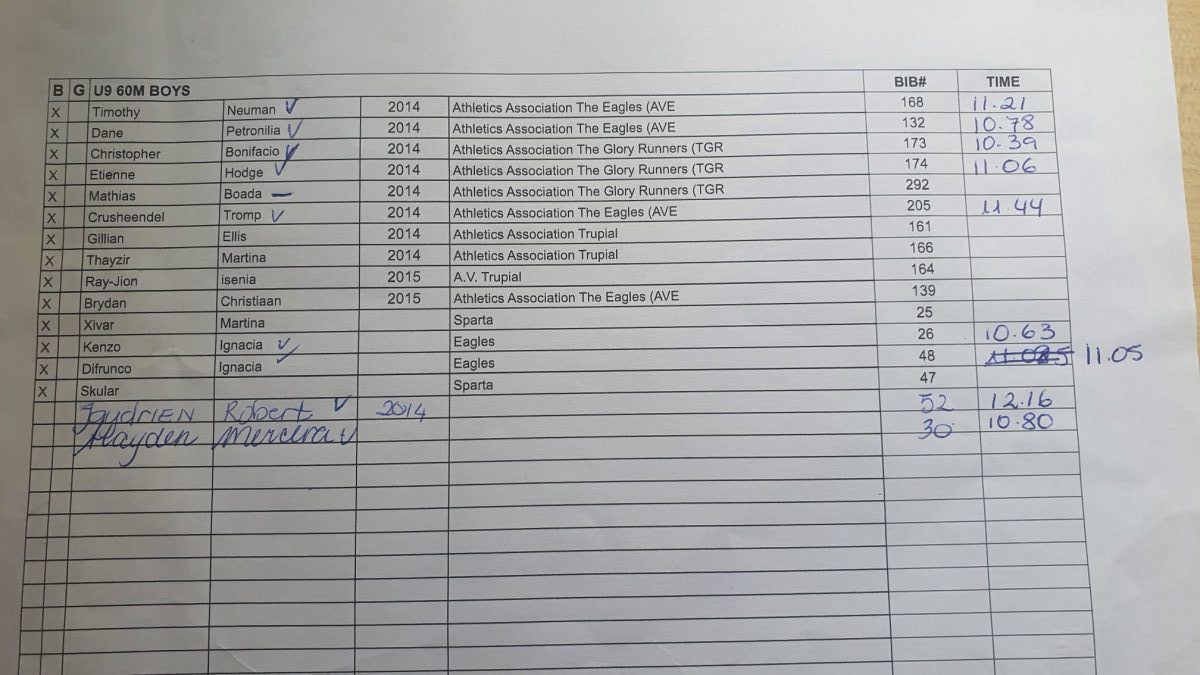 B G U9 60M BOYS BIB# TIME
X Timothy Neuman ✓ 2014 Athletics Association The Eagles (AVE 168 11.21
X Dane Petronilia ✓ 2014 Athletics Association The Eagles (AVE 132 10.78
X Christopher Bonifacio ✓ 2014 Athletics Association The Glory Runners (TGR 173 10.39
X Etienne Hodge ✓ 2014 Athletics Association The Glory Runners (TGR 174 11.06
X Mathias Boada — 2014 Athletics Association The Glory Runners (TGR 292
X Crusheendel Tromp ✓ 2014 Athletics Association The Eagles (AVE 205 11.44
X Gillian Ellis 2014 Athletics Association Trupial 161
X Thayzir Martina 2014 Athletics Association Trupial 166
X Ray-Jion isenia 2015 A.V. Trupial 164
X Brydan Christiaan 2015 Athletics Association The Eagles (AVE 139
X Xivar Martina Sparta 25
X Kenzo Ignacia ✓ Eagles 26 10.63
X Difrunco Ignacia ✓ Eagles 48 11.05
X Skular Sparta 47
Robert ✓ 2014 52 12.16
Hayden Mercera ✓ 30 10.80